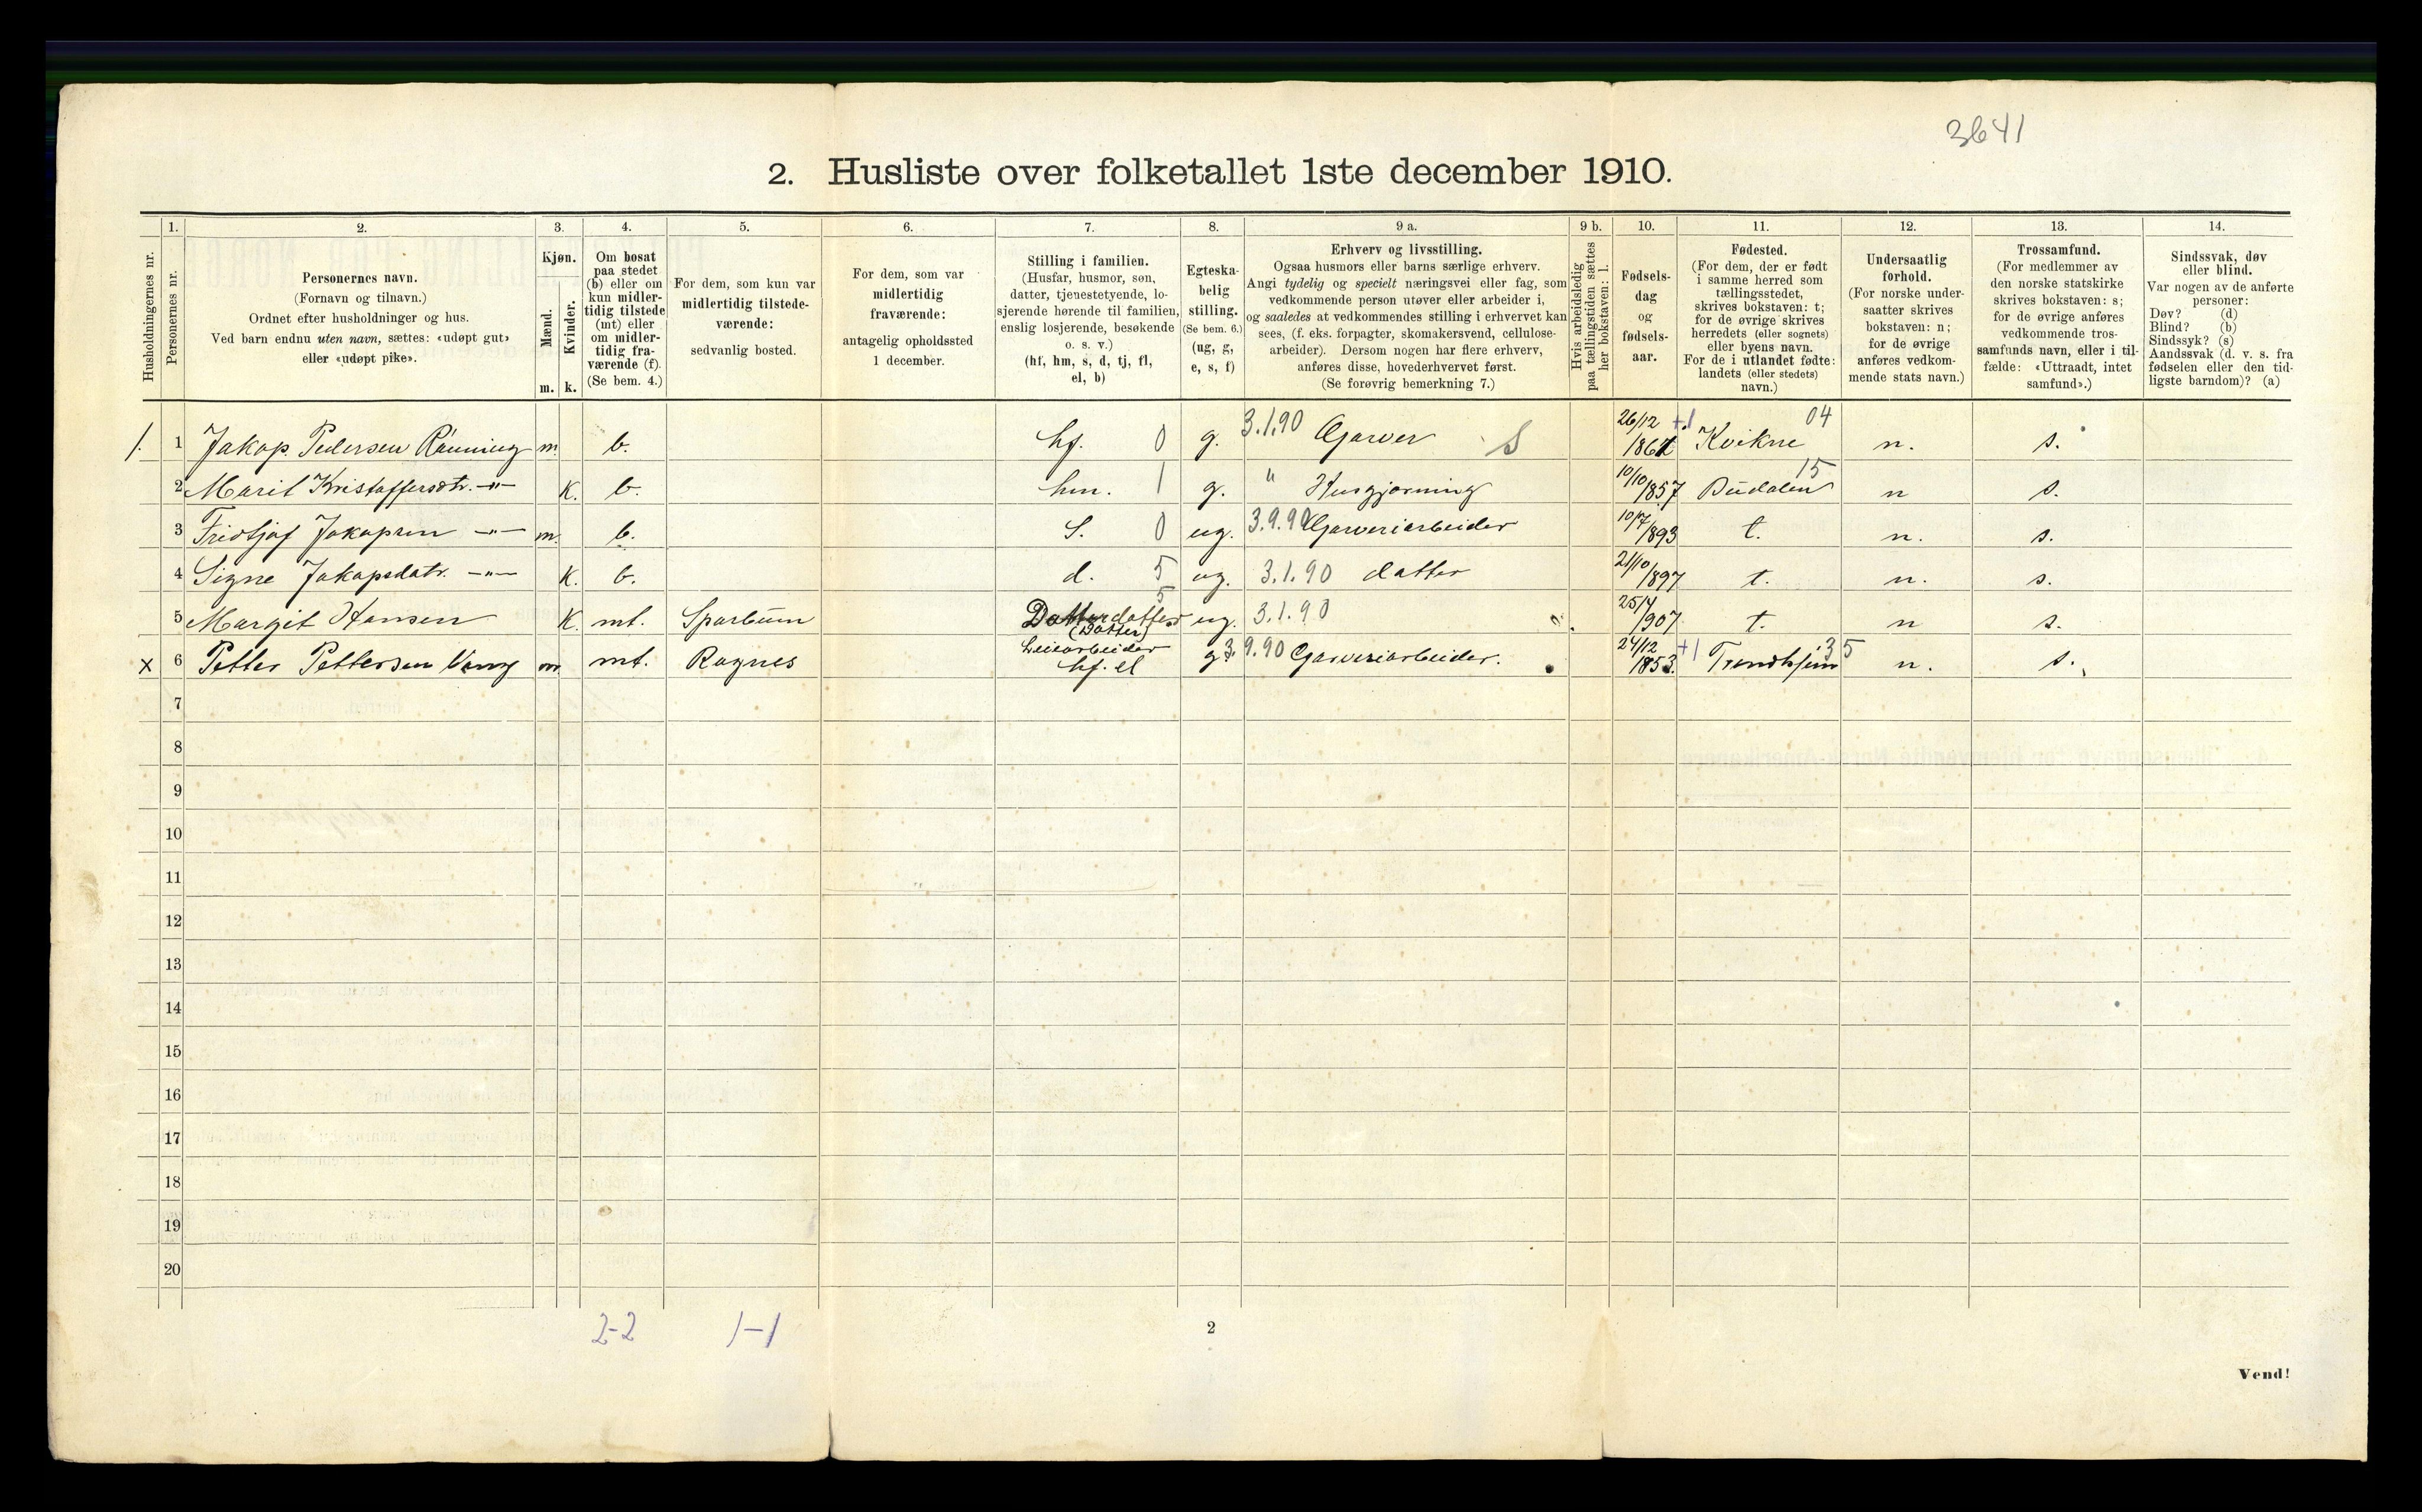 3641
2. Husliste over folketallet 1ste december 1910.
1. 2. 3. 4. 5. 6. 7. 8. 9 a. 9 b. 10. 11. 12. 13. 14.
Husholdningernes nr.
Personernes nr.
Personernes navn.
(Fornavn og tilnavn.)
Ordnet efter husholdninger og hus.
Ved barn endnu uten navn, sættes: «udøpt gut»
eller «udøpt pike».
Kjøn.
Mænd.
m.
Kvinder.
k.
Om bosat
paa stedet
(b) eller om
kun midler-
tidig tilstede
(mt) eller
om midler-
tidig fra-
værende (f).
(Se bem. 4.)
For dem, som kun var
midlertidig tilstede-
værende:
sedvanlig bosted.
For dem, som var
midlertidig
fraværende:
antagelig opholdssted
1 december.
Stilling i familien.
(Husfar, husmor, søn,
datter, tjenestetyende, lo-
sjerende hørende til familien,
enslig losjerende, besøkende
o. s. v.)
(hf, hm, s, d, tj, fl,
el, b)
Egteska-
belig
stilling.
(Se bem. 6.)
(ug, g,
e, s, f)
Erhverv og livsstilling.
Ogsaa husmors eller barns særlige erhverv.
Angi tydelig og specielt næringsvei eller fag, som
vedkommende person utøver eller arbeider i,
og saaledes at vedkommendes stilling i erhvervet kan
sees, (f. eks. forpagter, skomakersvend, cellulose-
arbeider). Dersom nogen har flere erhverv,
anføres disse, hovederhvervet først.
(Se forøvrig bemerkning 7.)
Hvis arbeidsledig
paa tællingstiden sættes
her bokstaven: l.
Fødsels-
dag
og
fødsels-
aar.
Fødested.
(For dem, der er født
i samme herred som
tællingsstedet,
skrives bokstaven: t;
for de øvrige skrives
herredets (eller sognets)
eller byens navn.
For de i utlandet fødte:
landets (eller stedets)
navn.)
Undersaatlig
forhold.
(For norske under-
saatter skrives
bokstaven: n;
for de øvrige
anføres vedkom-
mende stats navn.)
Trossamfund.
(For medlemmer av
den norske statskirke
skrives bokstaven: s;
for de øvrige anføres
vedkommende tros-
samfunds navn, eller i til-
fælde: «Uttraadt, intet
samfund».)
Sindssvak, døv
eller blind.
Var nogen av de anførte
personer:
Døv? (d)
Blind? (b)
Sindssyk? (s)
Aandssvak (d. v. s. fra
fødselen eller den tid-
ligste barndom)? (a)
1. 1 Jakop. Pedersen Rønning m. b. hf. 0 g. 3.1.90 Garver S 26/12 +1 Kvikne 04 n. s.
2 Marit Kristoffersdtr. -"- K. b. hm. 1 g. " Husgjørning 10/10 1857 Budalen 15 n s.
3 Fridtjof Jakopsen -"- m. b. S. 0 ug. 3.9.90 Garveriarbeider 10/7 1893 t. n. s.
4 Signe Jakopsdatr. -"- K. b. d. 5 ug. 3.1.90 datter 21/10 1897 t. n. s.
5 Margit Hansen K. mt. Sparbuen Datterdatter 5 (Datter) ug. 3.1.90 25/4 1907 t. n s.
x 6 Petter Pettersen Vang m. mt. Rognes Leiearbeider hf. el g. 3.9.90 Garveriarbeider. 24/12 1853. +1 Trondhjem 35 n. s.
7
8
9
10
11
12
13
14
15
16
17
18
19
20
2-2 1-1
2
Vend!